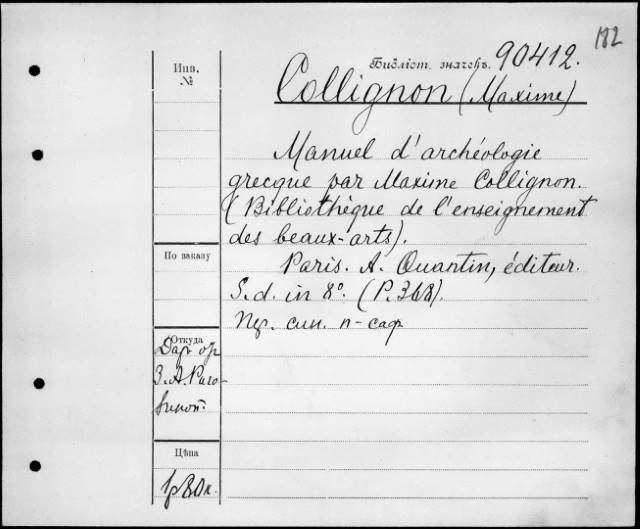 182
Библіот. значекъ. 90412.
Инв.
№
Collignon (Maxime)
Manuel d'archéologie
grecque par Maxime Collignon.
(Bibliothèque de l'enseignement
des beaux-arts).
По заказу
Paris. A. Quantin, éditeur.
S. d. in 8°. (P. 368).
Пер. син. п-сафр
Откуда
Даръ отъ
З. А. Раго-
Цѣна
1р80к.